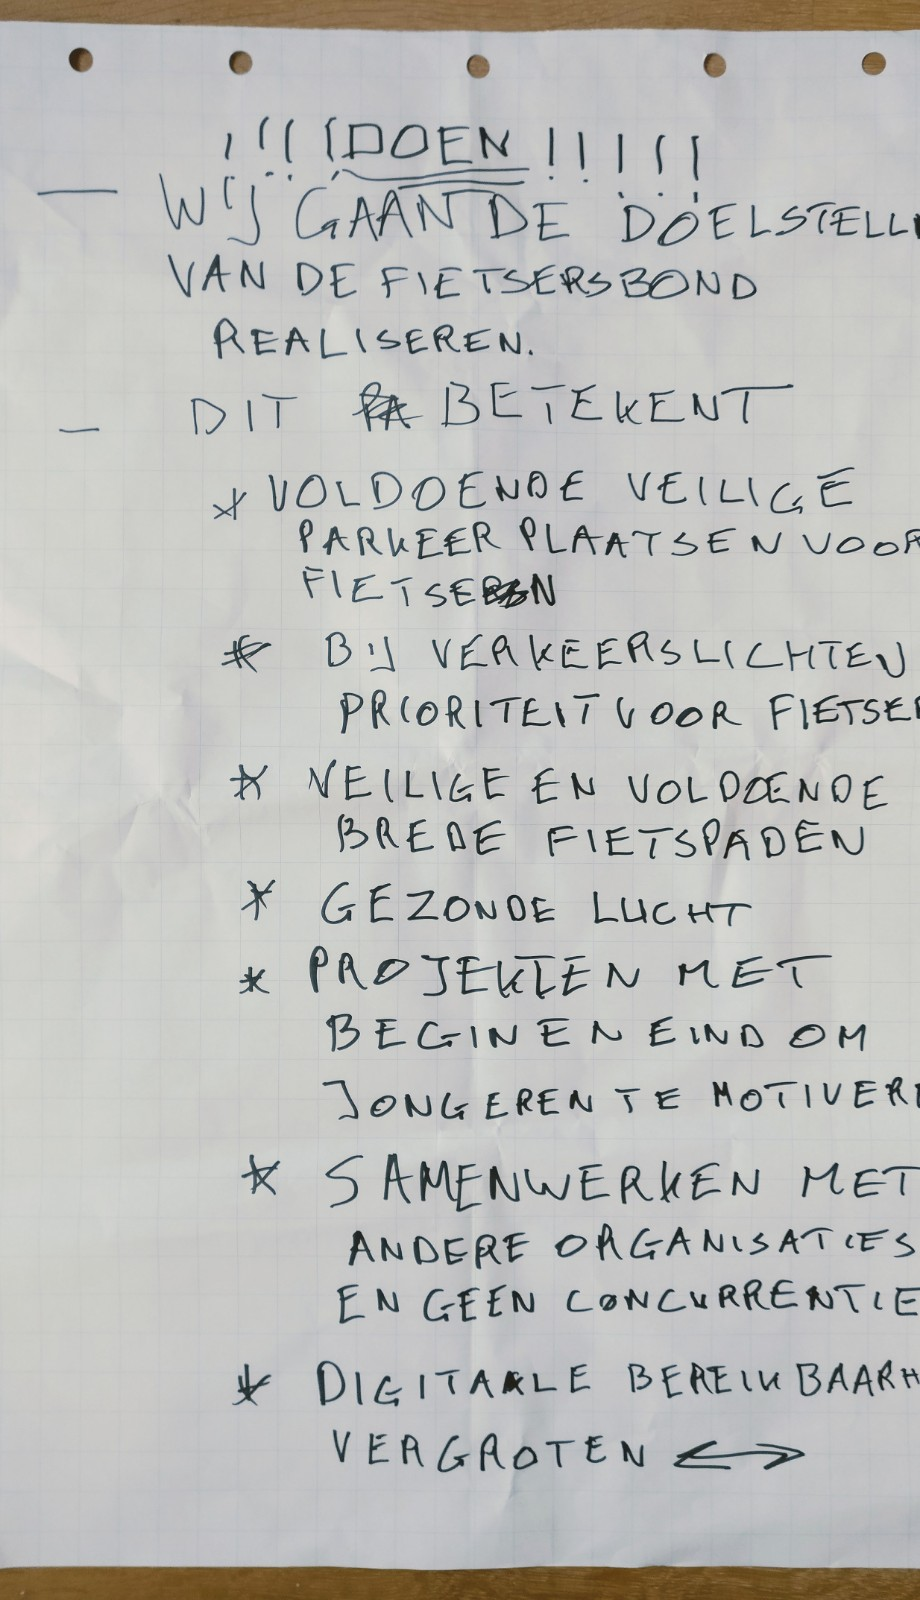 !!!! DOEN !!!!!
— WIJ GAAN DE DOELSTELL
VAN DE FIETSERSBOND
REALISEREN.
— DIT BETEKENT
* VOLDOENDE VEILIGE
PARKEER PLAATSEN VOOR
FIETSEN
* BIJ VERKEERSLICHTEN
PRIORITEIT VOOR FIETSER
* VEILIGE EN VOLDOENDE
BREDE FIETSPADEN
* GEZONDE LUCHT
* PROJEKTEN MET
BEGIN EN EIND OM
JONGEREN TE MOTIVERE
* SAMENWERKEN MET
ANDERE ORGANISATIES
EN GEEN CONCURRENTIE
* DIGITALE BEREIKBAARH
VERGROTEN ↔